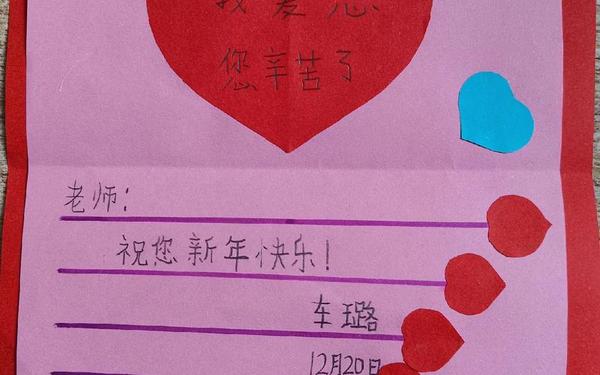 我爱您
您辛苦了
老师：
祝您新年快乐！
车璐
12月20日